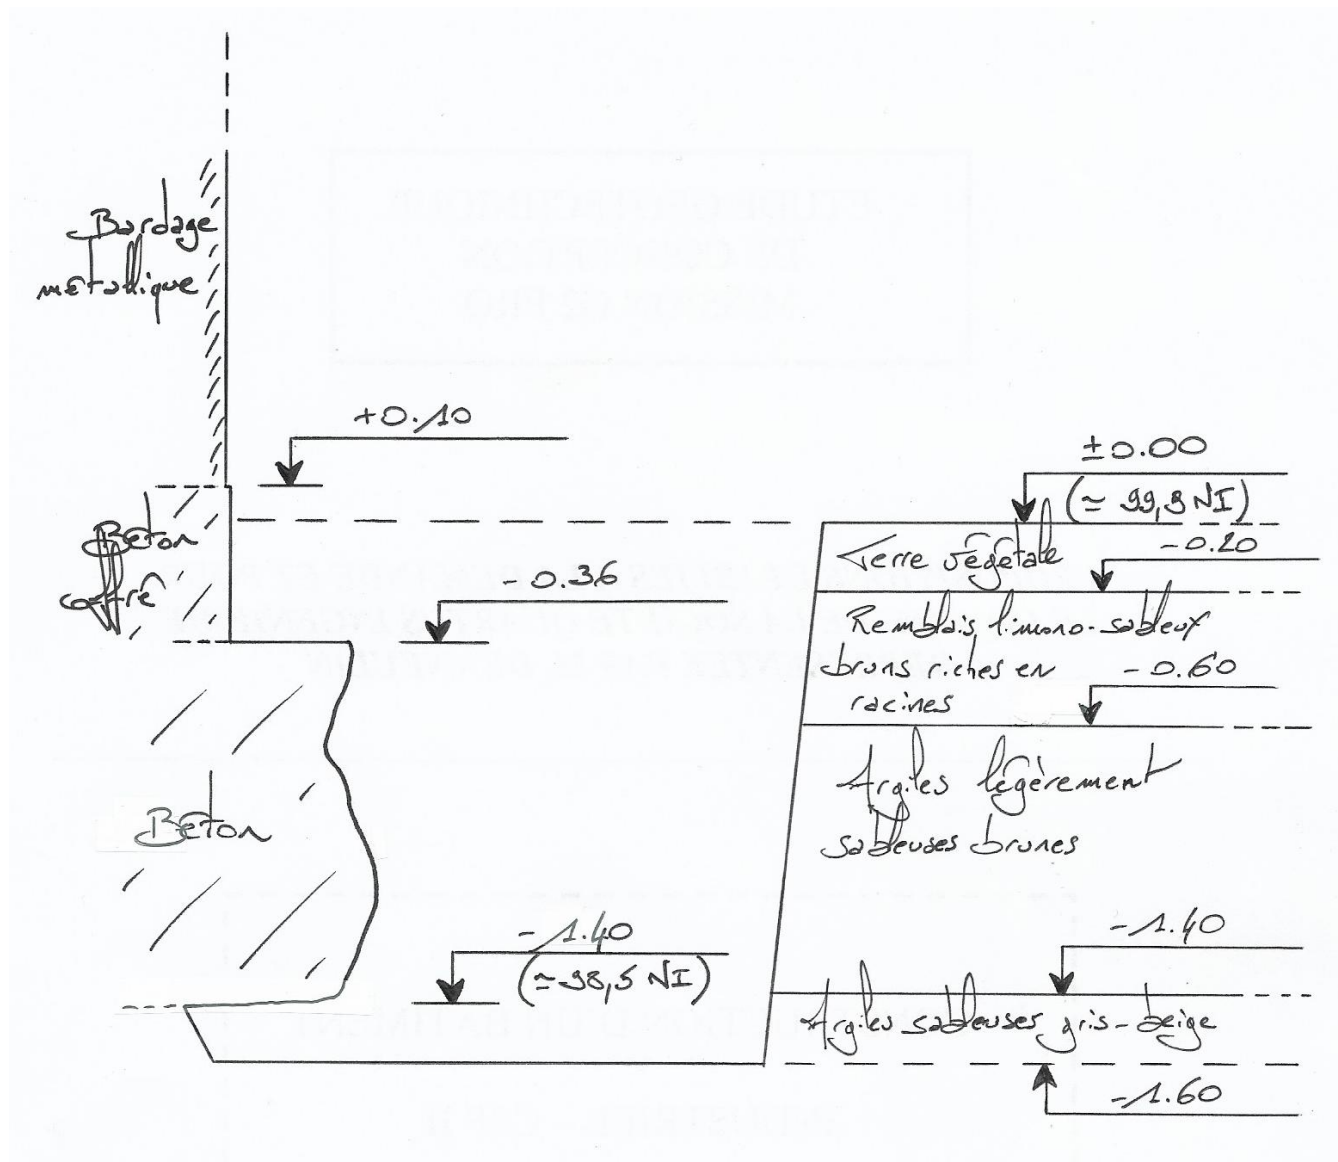 Bardage
métallique
+0.10
±0.00
(≃ 99,9 NI)
Béton
coffré
Terre végétale
-0.20
-0.36
Remblais limono-sableux
bruns riches en
racines
-0.60
Argiles légèrement
sableuses brunes
Béton
-1.40
(≃98,5 NI)
-1.40
Argiles sableuses gris-beige
-1.60